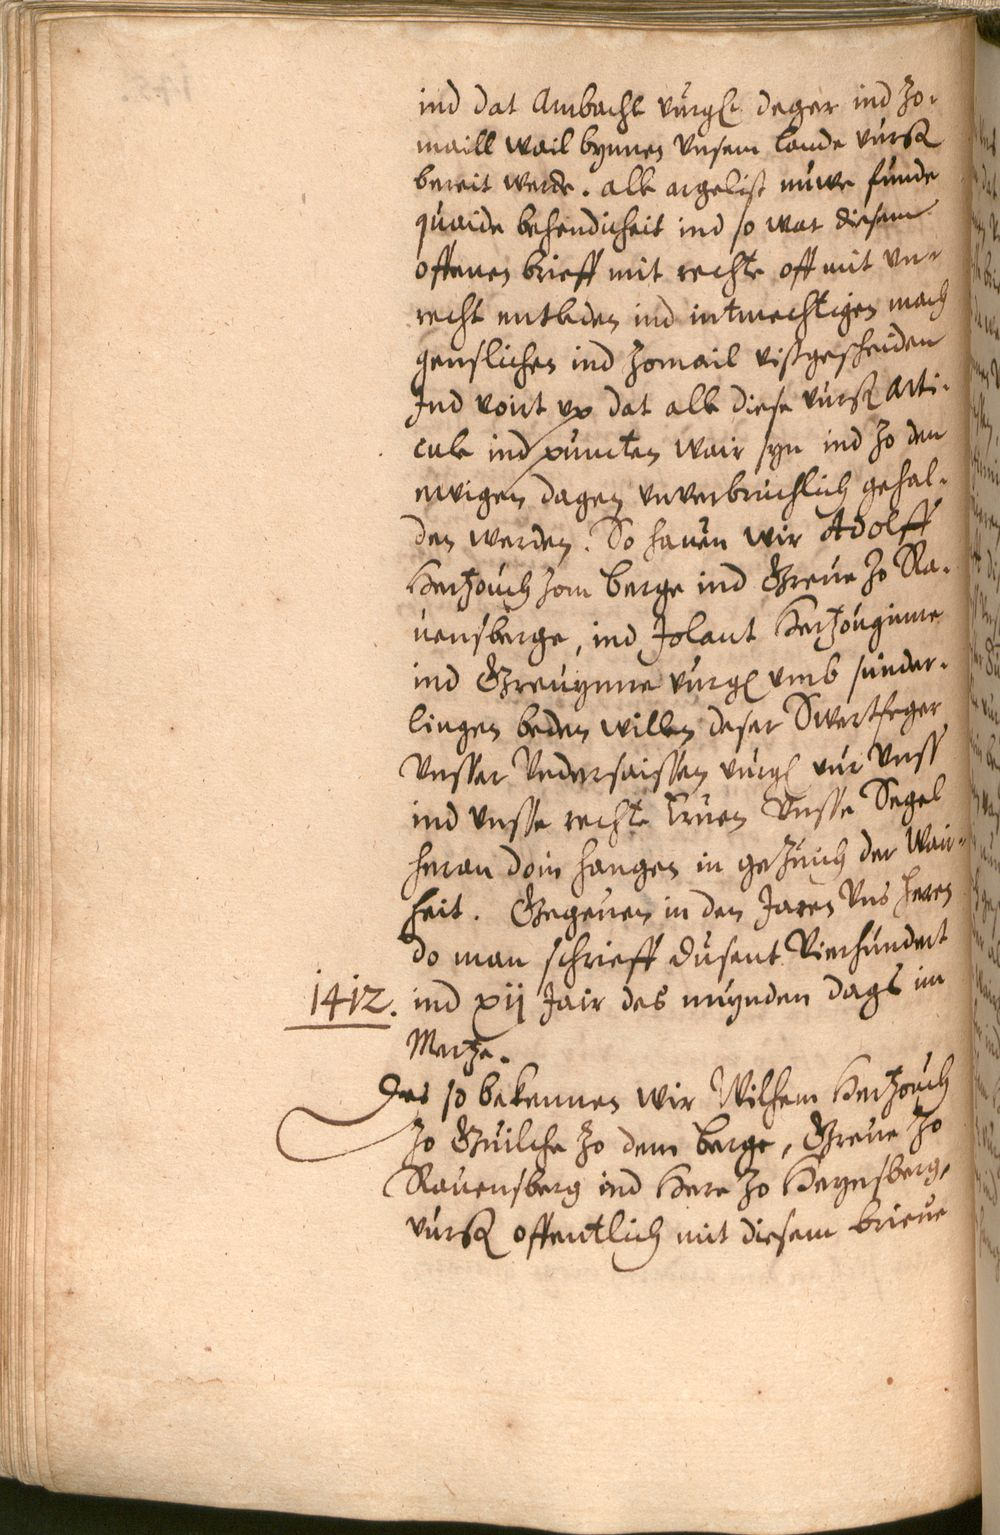 ind dat Ambacht vurg. deger ind zo-
maill wail bynnen Unsem lande vursz
bereit werde. alle argelist nuwe funde
quaide behendicheit ind so wat diesem
offenen brieff mit rechte off mit un-
recht entleden ind intmechtigen mach
genslichen ind zomail uißgescheiden
Ind voirt up dat alle diese vursz arti-
cule ind puncten wair syn ind zo den
ewigen dagen unverbruchlich gehal-
den werden. So haven wir Adolff
Hertzouch zom berge ind Greve zo Ra-
vensberge, ind Jolant Hertzouginne
ind Grevynne vurg umb sunder-
lingen beden willen deser Swertfeger
Unsser Undersaissen vurg vur Unss
ind unsse rechte Erven Unsse Segel
heran doin hangen in gezuich der Wair-
heit. Gegeven in den Jaren Uns heren
do man schrieff dusent Vierhundert
1412. ind xij Jair des nuynden dags im
Mertze.
Des so bekennen wir Wilhem Hertzouch
zo Guilche zo dem berge, Greve zo
Ravensberg ind Here zo Heynsberg,
vursz offentlich mit diesem brieve